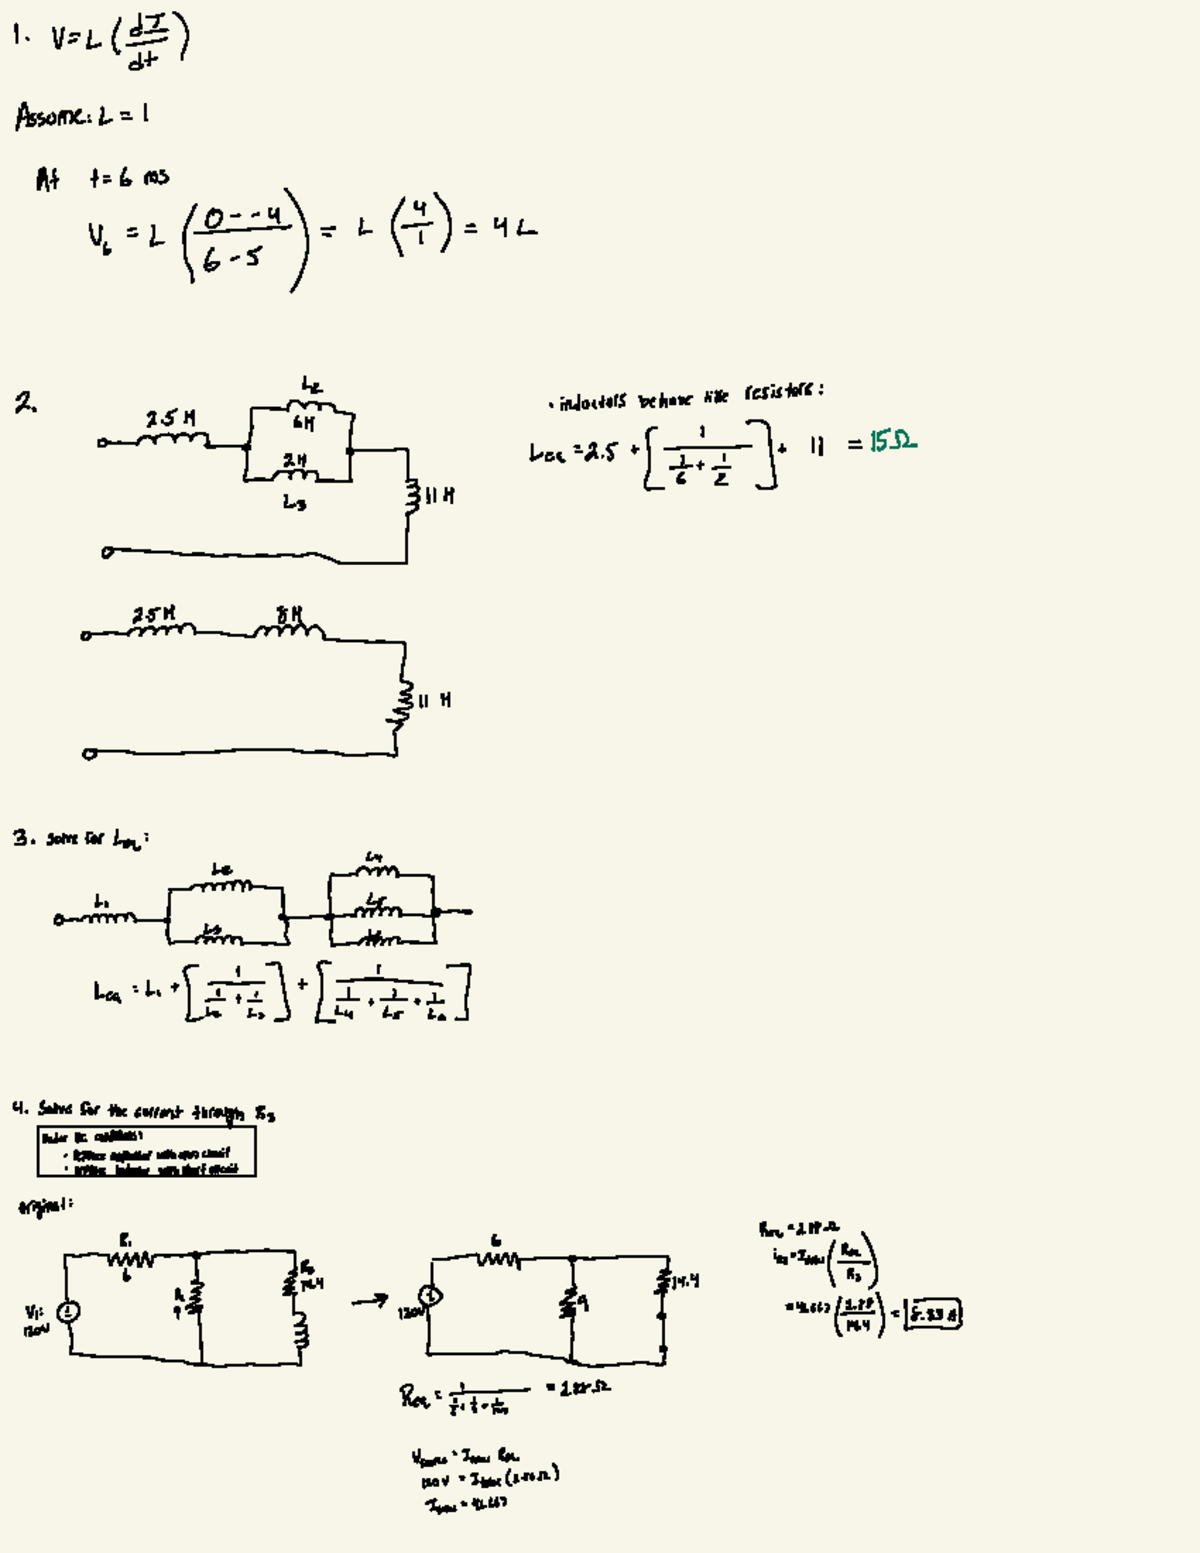 1. V = L (dI/dt)
Assume: L = 1
At t = 6 ms
V₆ = L ((0 - -4)/(6 - 5)) = L (4/1) = 4L
2.
L2
2.5 H
6H
2H
L3
11 H
• inductors behave like resistors:
Leq = 2.5 + [1/(1/6 + 1/2)] + 11 = 15Ω
2.5 H
8 H
11 H
3. Solve for Leq:
L1
L2
L3
L4
L5
Leq = L1 + [1/(1/L2 + 1/L3)] + [1/(1/L4 + 1/L5 + 1/L6)]
4. Solve for the current through R3
Under DC conditions:
• Replace capacitor with open circuit
• replace inductor with short circuit
original:
R1
6
R3
14.4
R
9
V1:
120V
6
9
14.4
120V
Req = 1/(1/6 + 1/9 + 1/14.4) = 2.88Ω
Req = 2.88 Ω
= 41.667 (2.88/14.4) = 8.33 A
120V
= 41.667